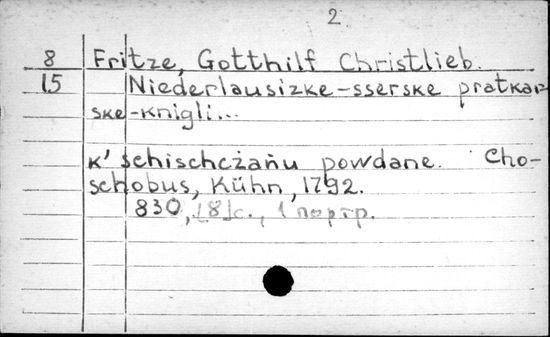 2.
8 Fritze, Gotthilf Christlieb.
15 Niederlausizke-sserske pratkar-
ske-knigli...
k' schischcżańu powdane. Cho-
schobus, Kühn, 1792.
830, [8]c., 1 портр.